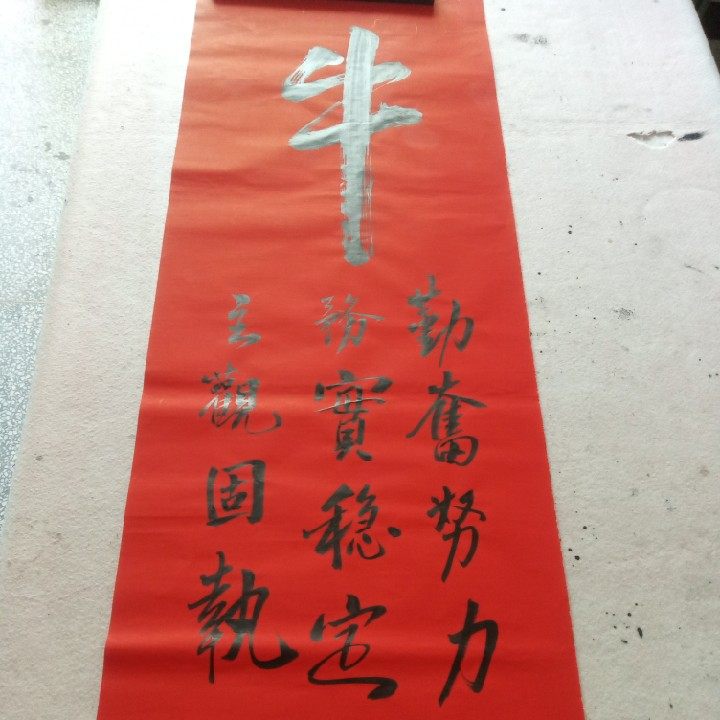 牛
勤奮努力
務實穏定
主觀固執